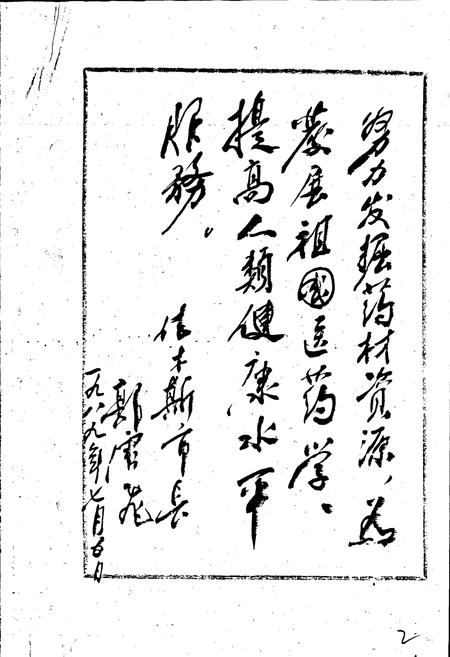 努力发掘药材资源,为
發展祖國医药学、
提高人類健康水平
服務。
佳木斯市長
郭
一九八九年七月五日
2